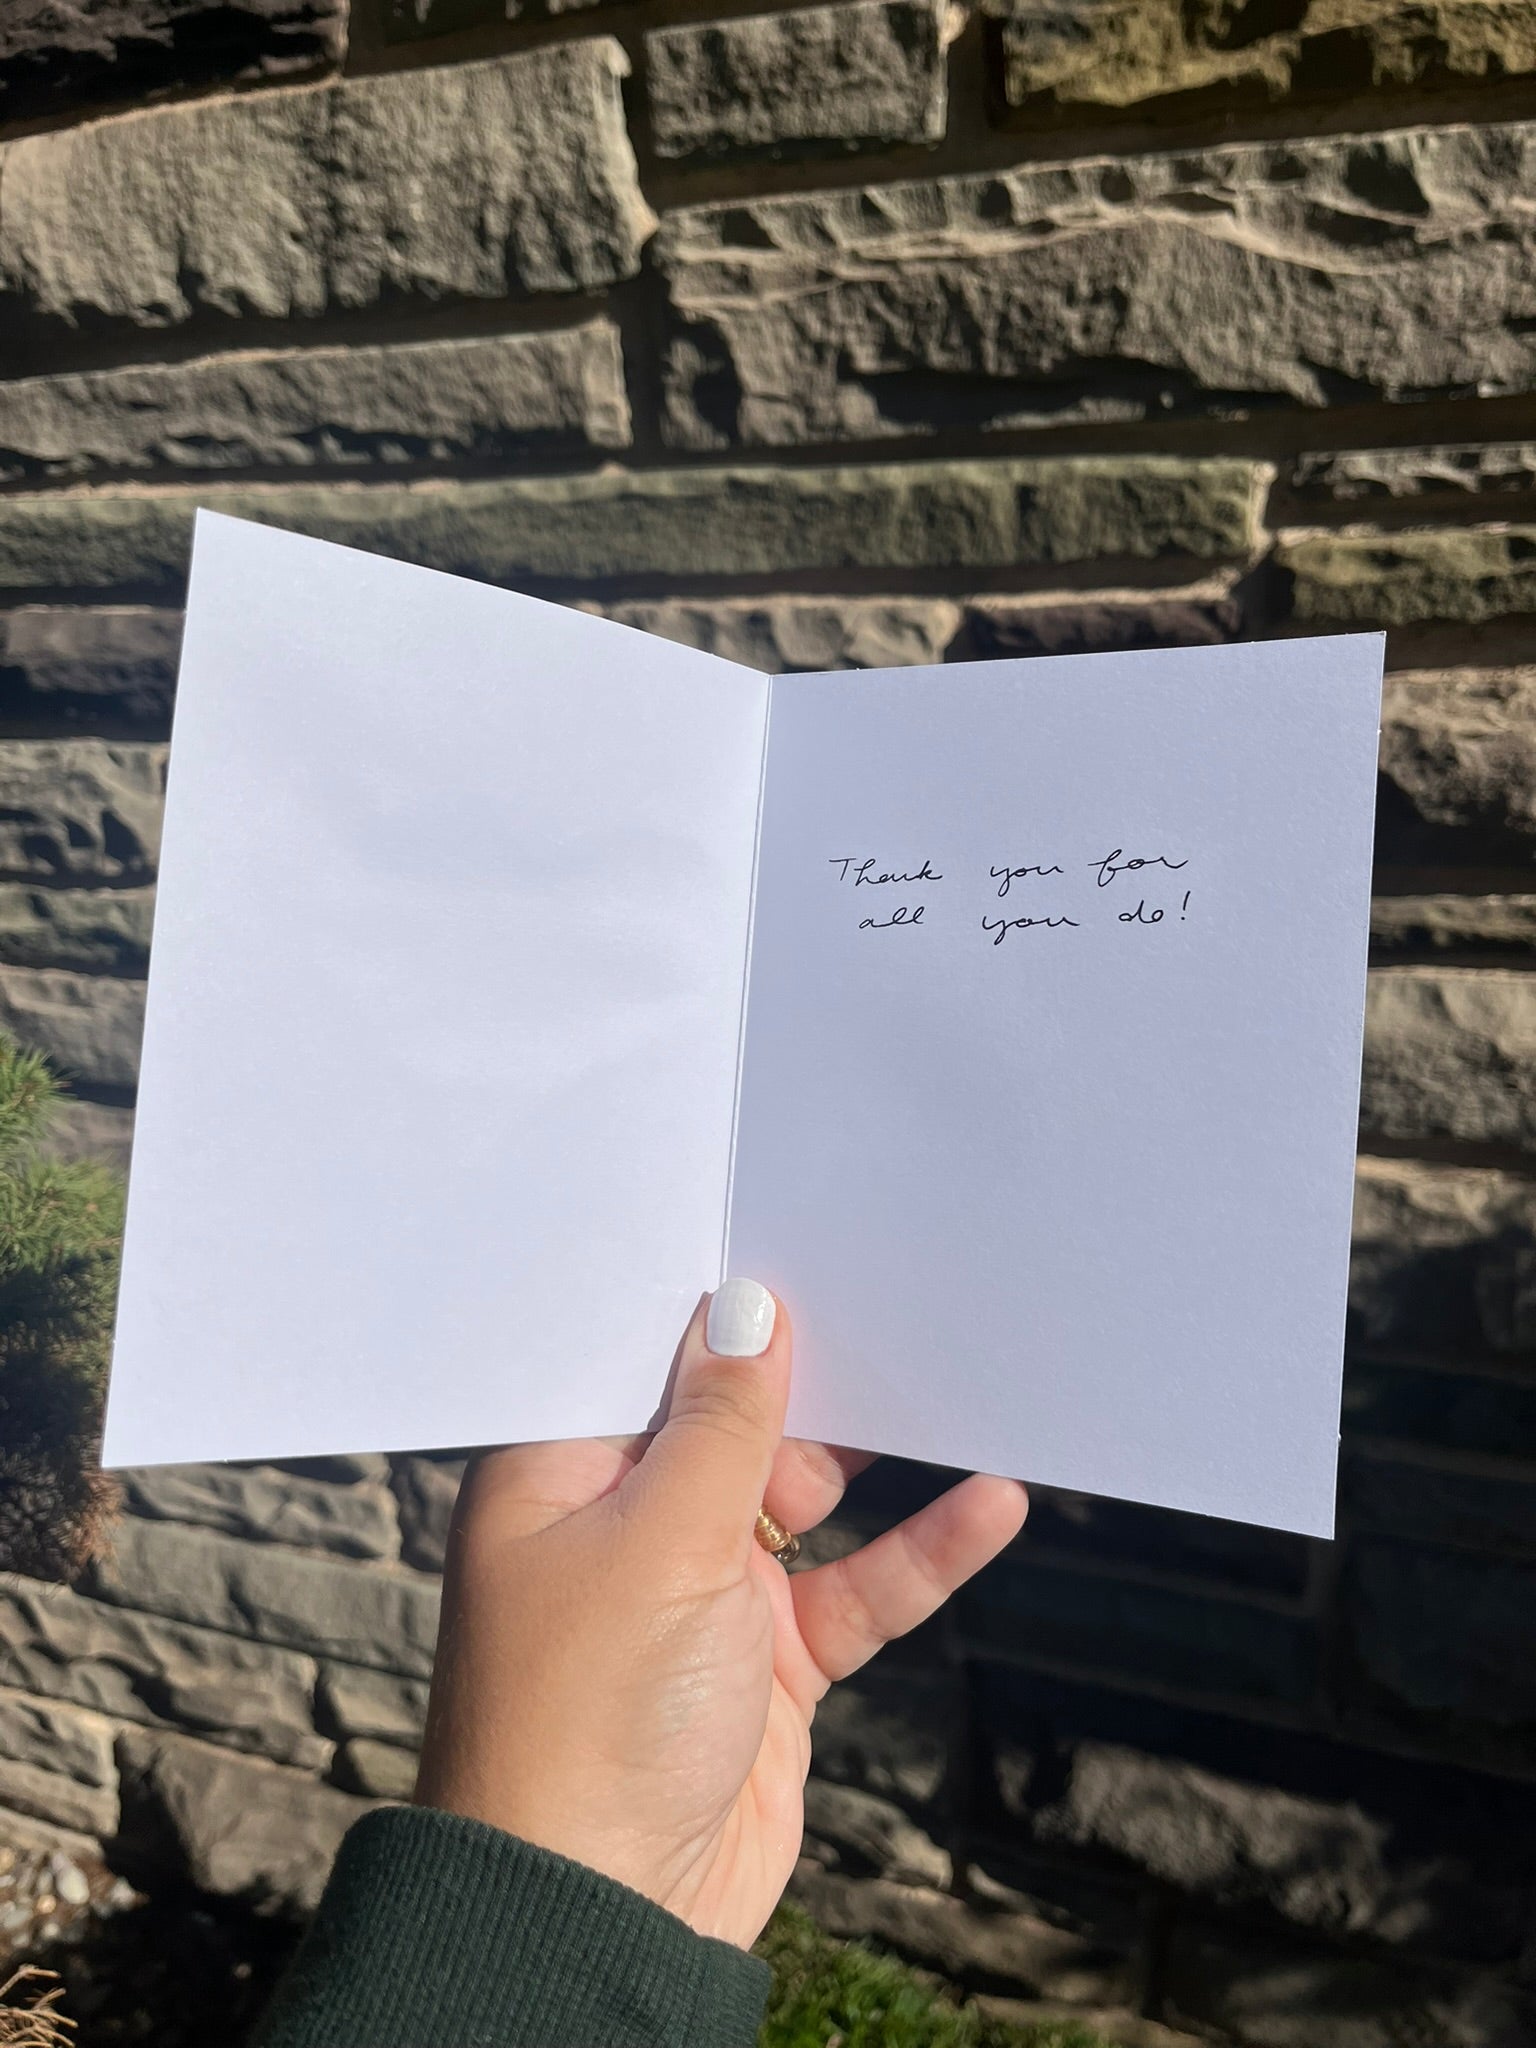 Thank you for
all you do!